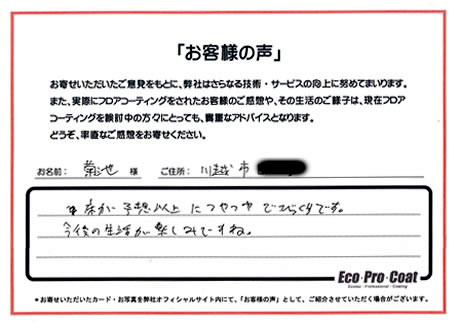 「お客様の声」
お寄せいただいたご意見をもとに、弊社はさらなる技術・サービスの向上に努めてまいります。
また、実際にフロアコーティングをされたお客様のご感想や、その生活のご様子は、現在フロア
コーティングを検討中の方々にとっても、貴重なアドバイスとなります。
どうぞ、率直なご感想をお寄せください。
お名前： 菊池 様 ご住所： 川越市
床が予想以上につやつやでびっくりです。
今後の生活が楽しみですね。
Eco・Pro・Coat
Ecolas・Professional・Coating
＊お寄せいただいたカード・お写真を弊社オフィシャルサイト内にて、「お客様の声」として、ご紹介させていただく場合がございます。